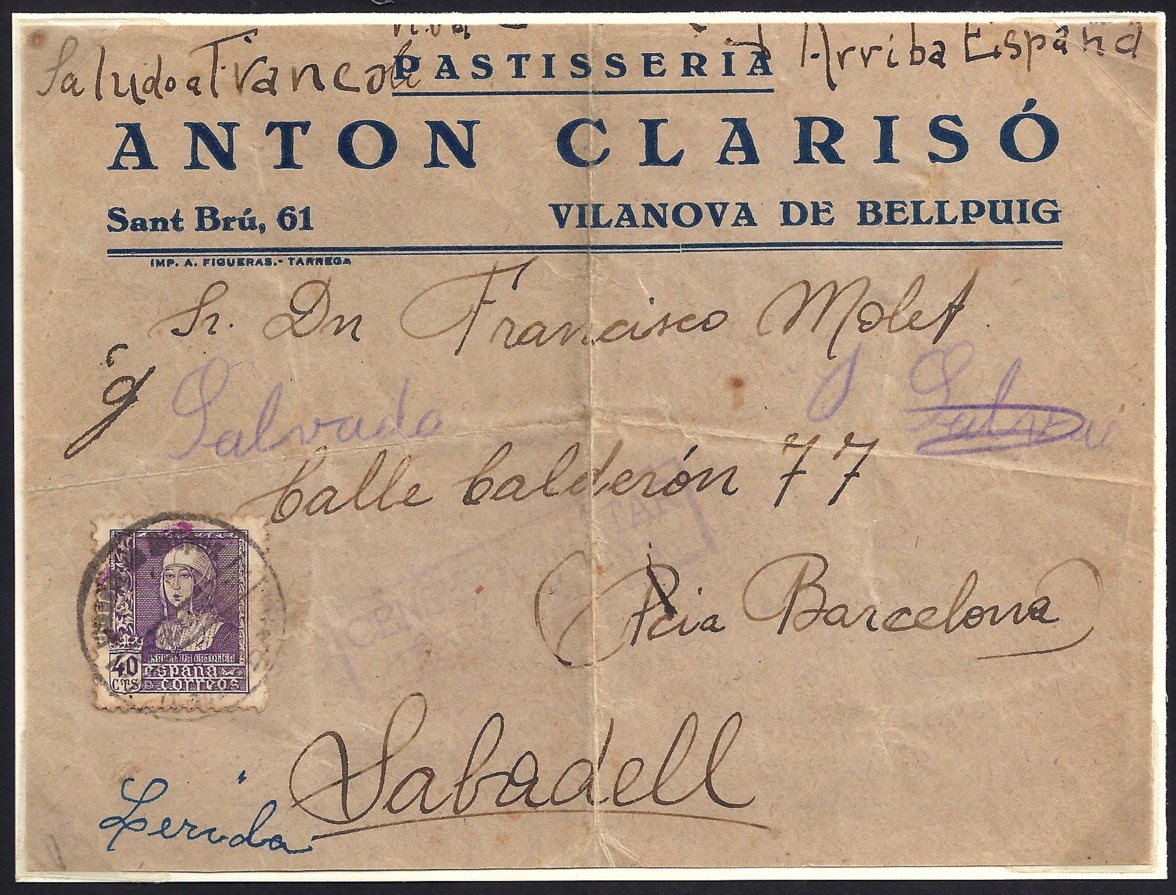 Saludo a Franco Arriba España
PASTISSERIA
ANTON CLARISÓ
Sant Brú, 61 VILANOVA DE BELLPUIG
IMP. A. FIGUERAS.- TARREGA
Sr. Dn Francisco Molet
Salvado
Calle Calderón 77
(Pcia Barcelona)
ISABEL LA CATOLICA
40 CTS
España
correos
Sabadell
Lerida